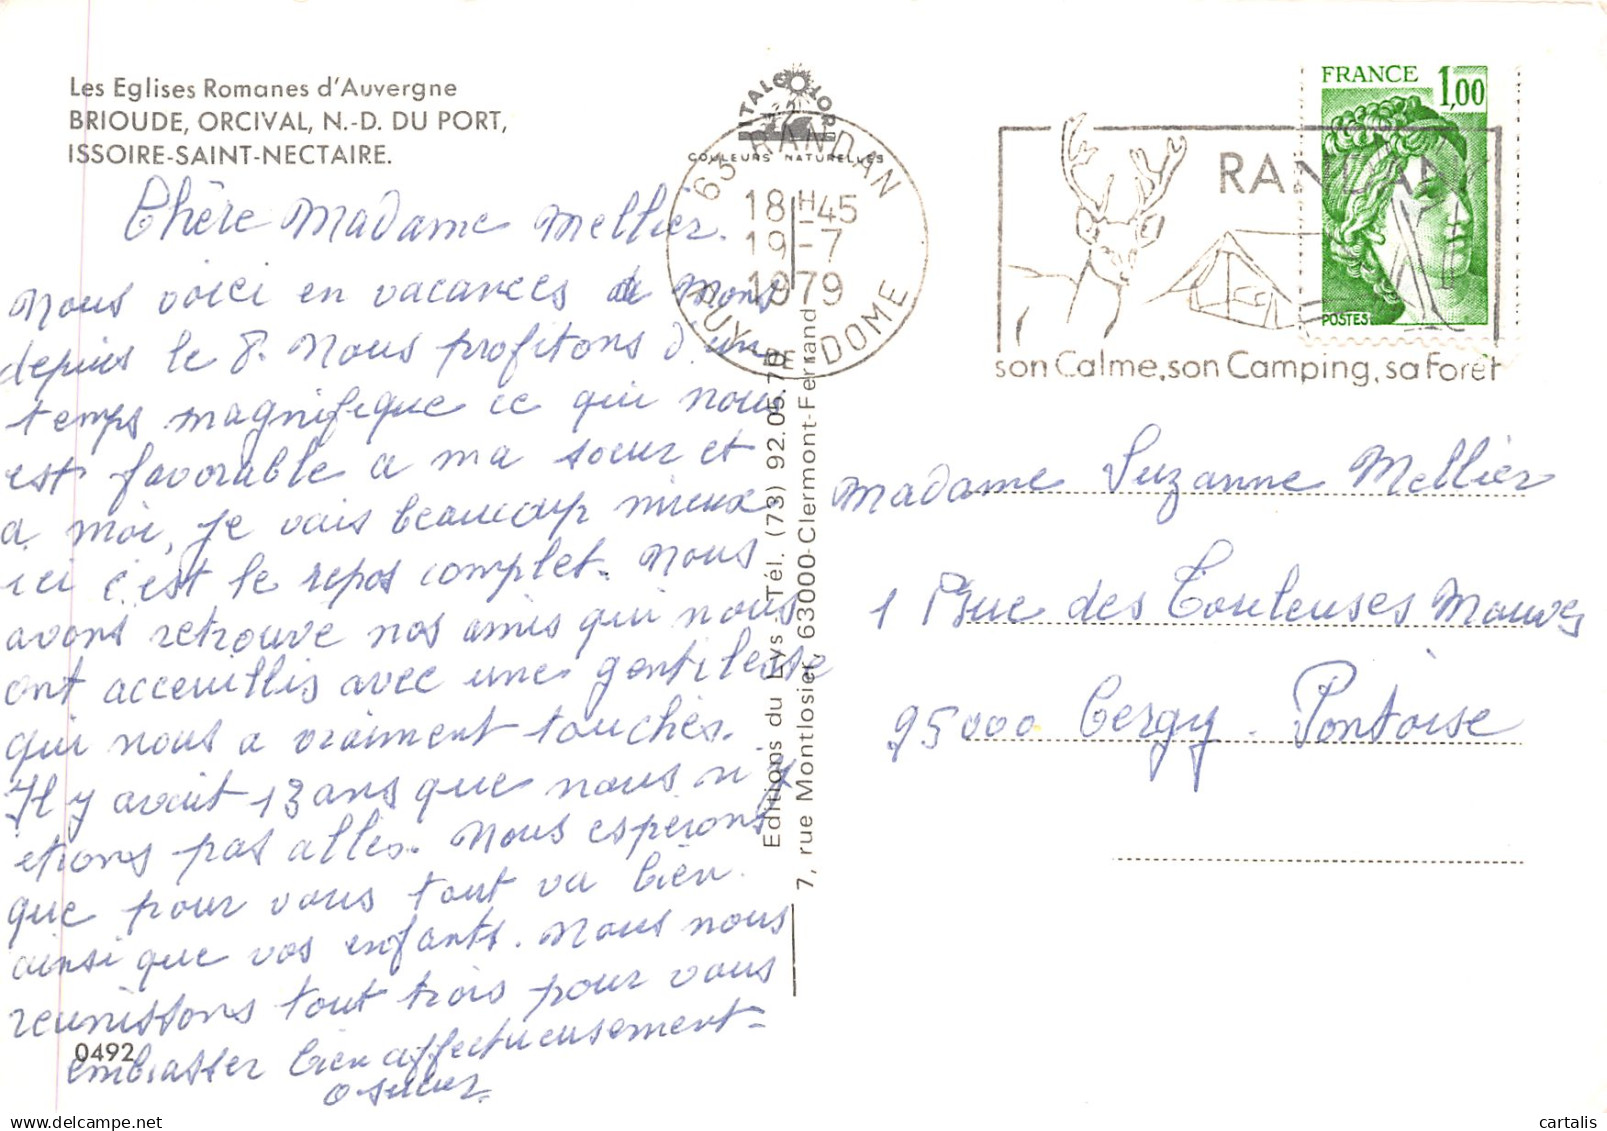 Les Eglises Romanes d'Auvergne
BRIOUDE, ORCIVAL, N.-D. DU PORT,
ISSOIRE-SAINT-NECTAIRE.
Chère Madame Mellier.
Nous voici en vacances de Mons
depuis le 8. Nous profitons d'un
temps magnifique ce qui nous
est favorable a ma soeur et
a moi, Je vais beaucoup mieux
ici c'est le repos complet. Nous
avons retrouve nos amis qui nous
ont acceuillis avec une gentilesse
qui nous a vraiment touchés.
Il y avait 13 ans que nous n'y
etions pas allés. Nous esperons
que pour vous tout va bien.
ainsi que vos enfants. Nous nous
reunissons tout trois pour vous
embrasser bien affectueusement-
0492
ITALCOLOR
COULEURS NATURELLES
63 RANDAN
18H45
19-7
1979
PUY-DE-DOME
Editions du Lys - Tél. (73) 92.05.7
7, rue Montlosier, 63000-Clermont-Ferrand
RANDAN
son Calme, son Camping, sa Forêt
FRANCE 1,00
POSTES
Madame Suzanne Mellier
1 Rue des Touleuses Mauves
95000 Cergy. Pontoise
cartalis
delcampe.net